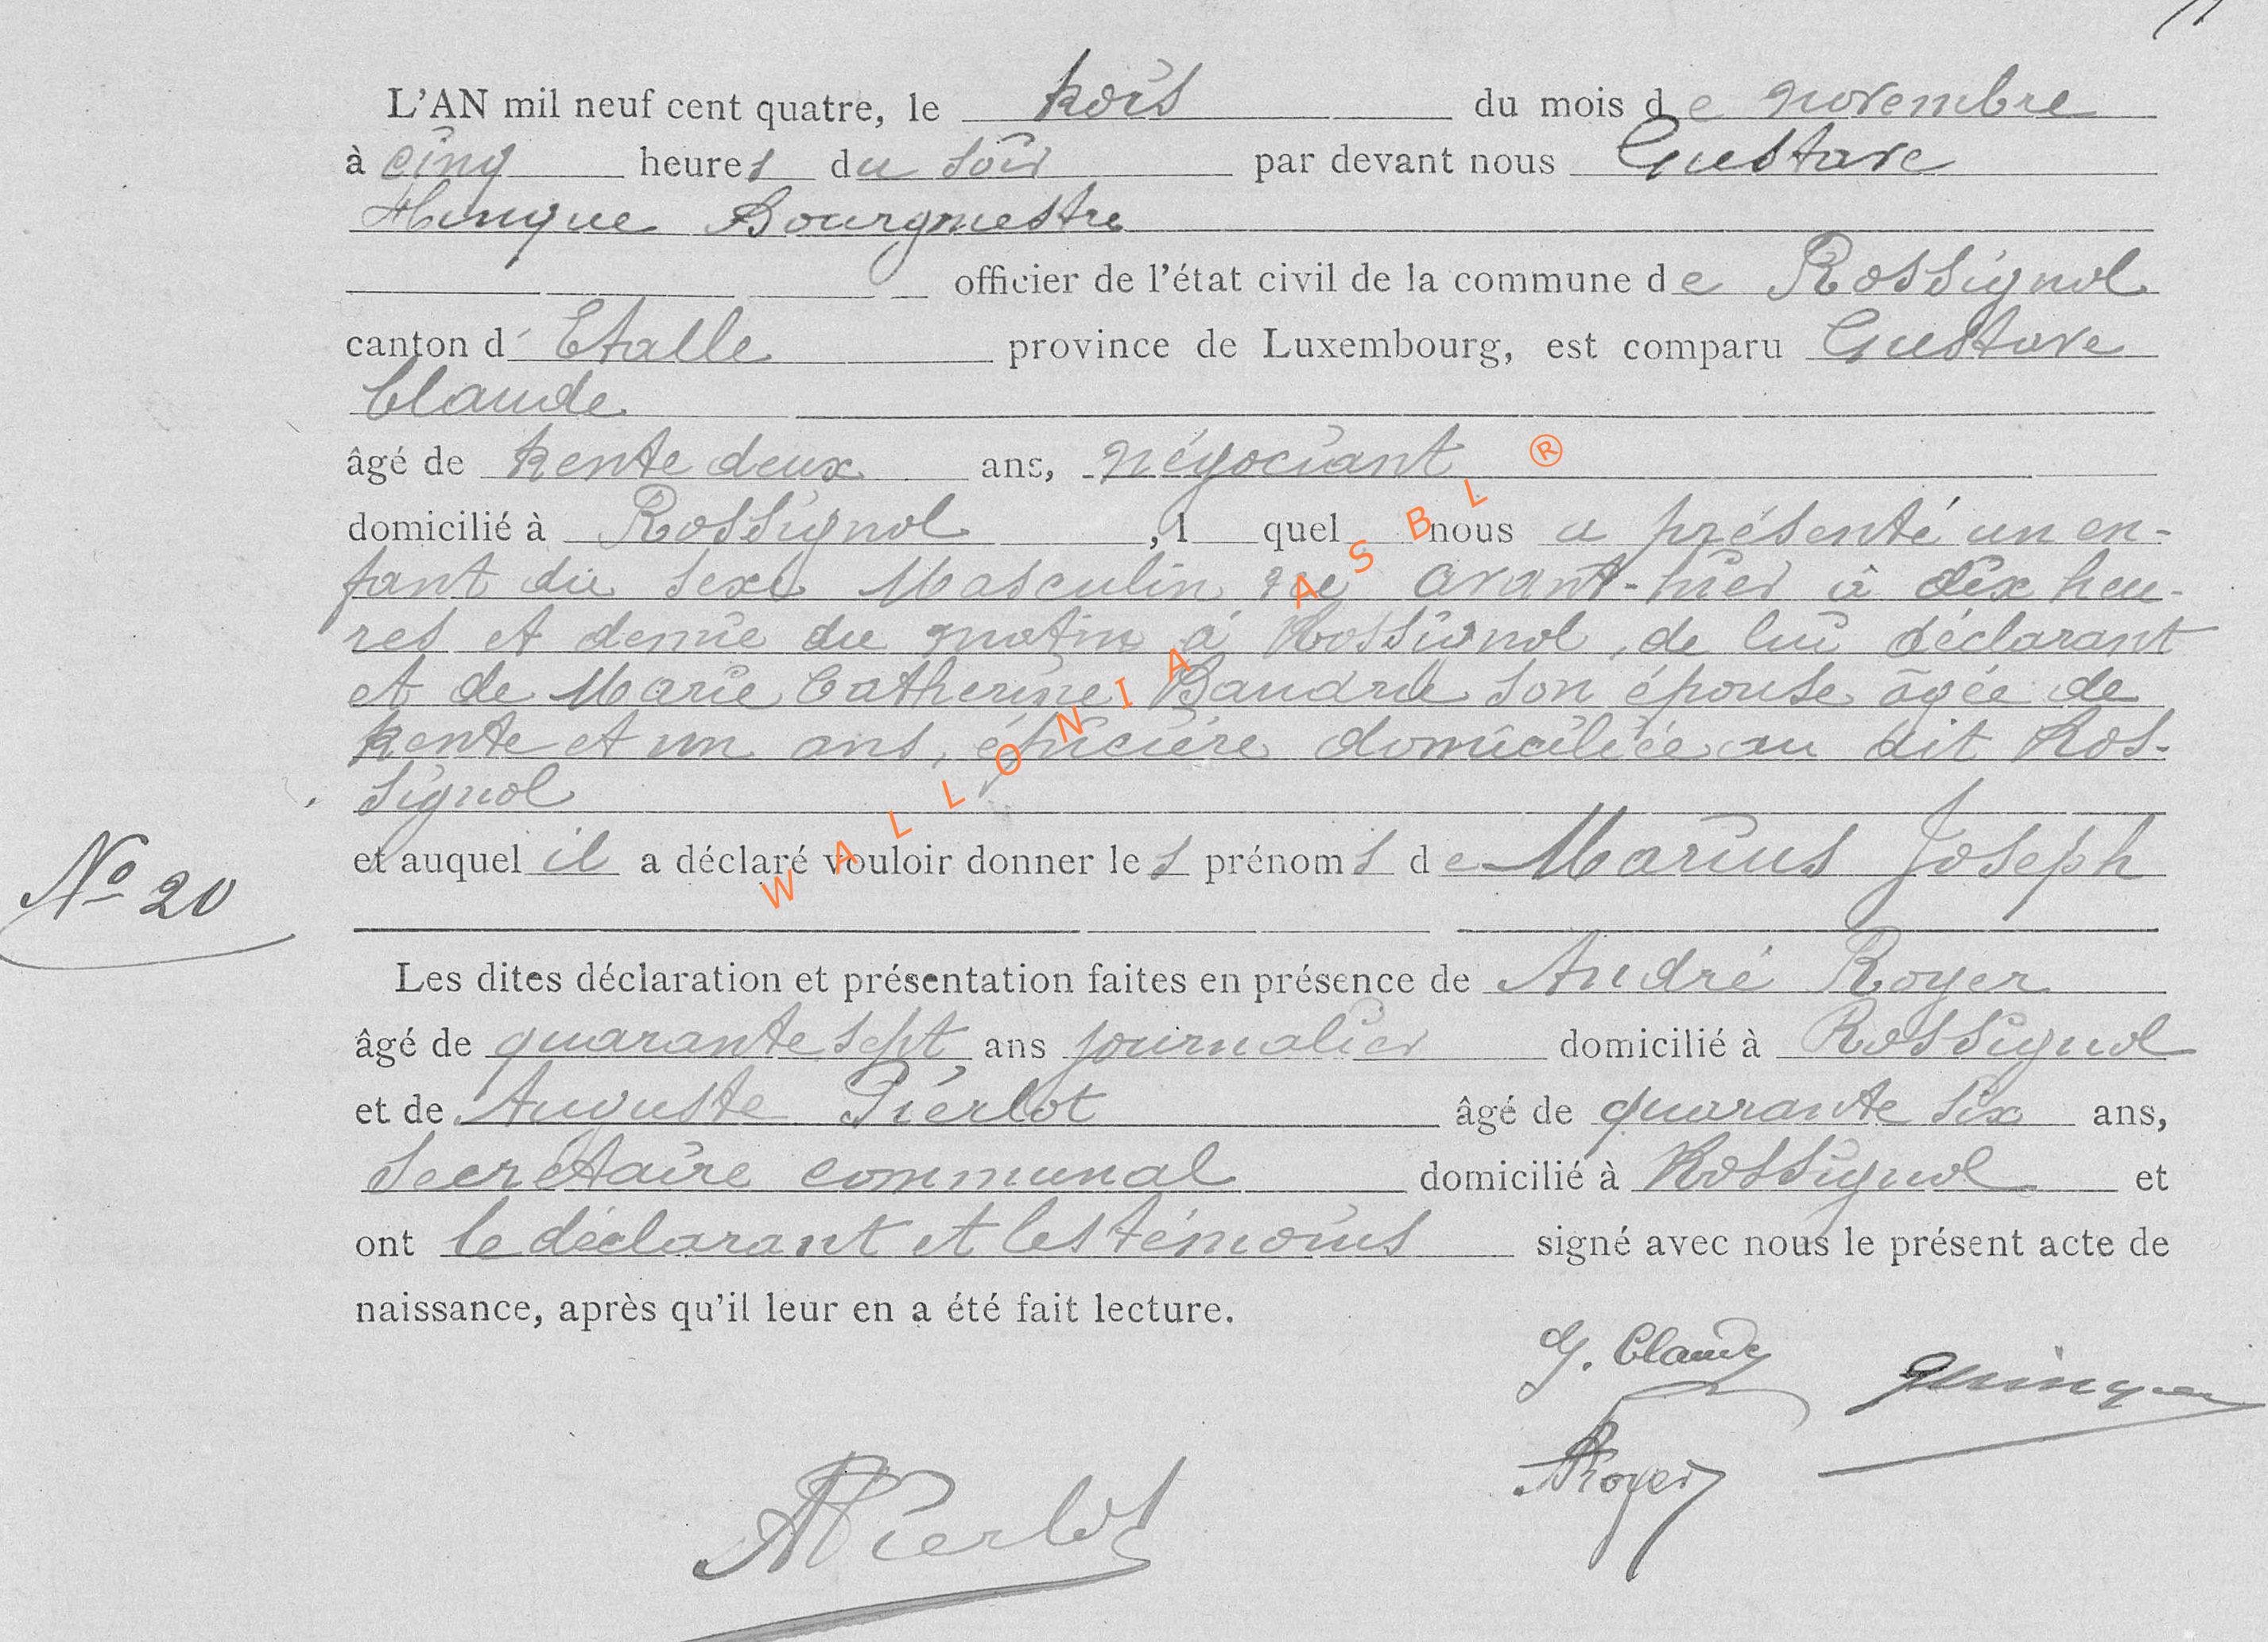 L'AN mil neuf cent quatre, le trois du mois de novembre
à cinq heures du soir par devant nous Gustave
Hinque Bourgmestre
officier de l'état civil de la commune de Rossignol
canton d' Etalle province de Luxembourg, est comparu Gustave
Claude
âgé de trente deux ans, négociant
domicilié à Rossignol, l quel nous a présenté un en-
fant du sexe Masculin né avant-hier à dix heu-
res et demie du matin à Rossignol, de lui déclarant
et de Marie Catherine Baudru son épouse âgée de
trente et un ans, épicière domiciliée au dit Ros-
signol
et auquel il a déclaré vouloir donner les prénoms de Marius Joseph
No 20
Les dites déclaration et présentation faites en présence de André Royer
âgé de quarante sept ans journalier domicilié à Rossignol
et de Auguste Pierlot âgé de quarante six ans,
secrétaire communal domicilié à Rossignol et
ont le déclarant et les témoins signé avec nous le présent acte de
naissance, après qu'il leur en a été fait lecture.
G. Claude
ARoyer
APierlot
WALLONIA ASBL ®